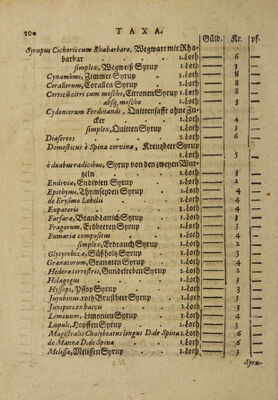 200 TAXA.
Güld. Kr. pf.
Syrupus Cichorii cum Rhabarbaro, Wegwart mit Rha-
barbar 1. Loth — 6 —
simplex, Wegweiß Syrup 1. Loth — 3 —
Cynamomi, Zimmet Syrup 1. Loth — 8 —
Coraliorum, Corallen Syrup 1. Loth — 8 —
Corticū citri cum moscho, Citronen Syrup 1. Loth — 8 —
absq; moscho 1. Loth — 3 —
Cydoniorum Ferdinandi, Quittensafft ohne Zu-
cker 1. Loth — 4 —
simplex, Quitten Syrup 1. Loth — 3 —
Diasereos 1. Loth — 6 —
Domesticus è Spina cervina, Kreutzbeer Syrup
1. Loth — 5 —
è duabus radicibus, Syrup von den zweyen Wur-
tzeln 1. Loth — 3 —
Endiviæ, Endivien Syrup 1. Loth — 2 —
Epithymi, Thymseyden Syrup 1. Loth — 4 —
de Erysimo Lobelii 1. Loth — 4 —
Eupatorii 1. Loth — 4 —
Farfaræ, Brandlattich Syrup 1. Loth — 3 —
Fragorum, Erdbeeren Syrup 1. Loth — 3 —
Fumariæ compositus 1. Loth — 4 —
simplex, Erdrauch Syrup 1. Loth — 2 —
Glycyrrhizæ, Süßholtz Syrup 1. Loth — 3 —
Granatorum, Granaten Syrup 1. Loth — 4 —
Hederæ terrestris, Gundelreben Syrup 1. Loth — 3 —
Holagogus 1. Loth —
Hyssopi, Yssop Syrup 1. Loth — 3 —
Jujubinus, roth Brustbeer Syrup 1. Loth — 3 —
Juniperi ex baccis 1. Loth — 3 —
Limonum, Limonien Syrup 1. Loth — 4 —
Lupuli, Hopffen Syrup 1. Loth — 3 —
Magistralis Chalybeatus longus D. de Spina 1. Loth — 6 —
de Manna D. de Spina 1. Loth — 6 —
Melissæ, Melissen Syrup 1. Loth — 3 —
Syru-